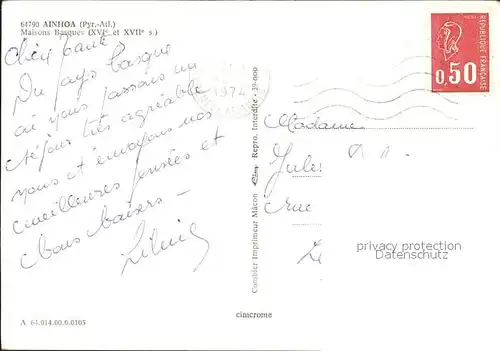 64790 AINHOA (Pyr.-Atl.)
Maisons Basques (XVIe et XVIIe s.)
Chère tante
Du pays basque
où nous passons un
séjour très agréable
nous t'envoyons nos
meilleures pensées et
bons baisers -
1974
REPUBLIQUE FRANÇAISE
0,50
Madame
Jules
rue
privacy protection
Datenschutz
Combier Imprimeur Mâcon
Repro. Interdite
cimcrome
A 64.014.00.0.0105